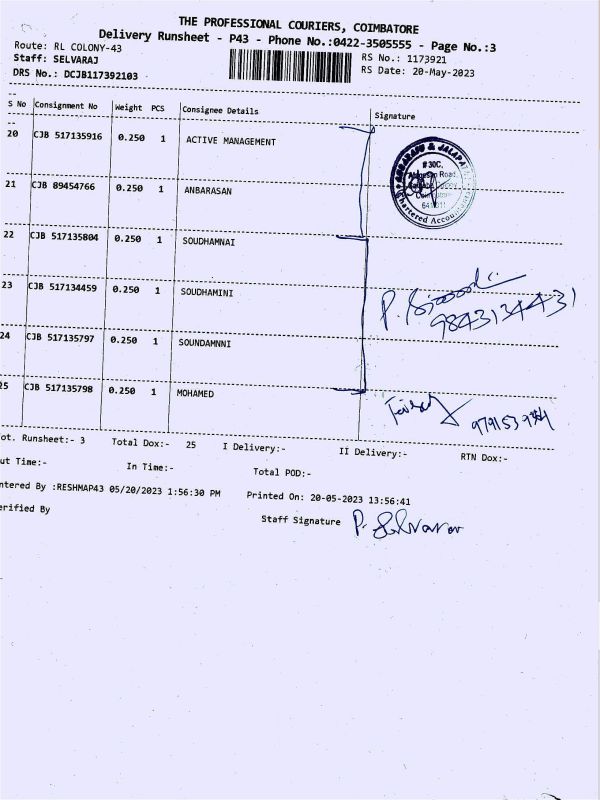 THE PROFESSIONAL COURIERS, COIMBATORE
Delivery Runsheet - P43 - Phone No.:0422-3505555 - Page No.:3
Route: RL COLONY-43
Staff: SELVARAJ
DRS No.: DCJB117392103
RS No.: 1173921
RS Date: 20-May-2023
S No Consignment No Weight PCS Consignee Details Signature
20 CJB 517135916 0.250 1 ACTIVE MANAGEMENT
# 30C,
Road,
Chartered Accou
21 CJB 89454766 0.250 1 ANBARASAN
22 CJB 517135804 0.250 1 SOUDHAMNAI
23 CJB 517134459 0.250 1 SOUDHAMINI
P.
9843134431
24 CJB 517135797 0.250 1 SOUNDAMNNI
25 CJB 517135798 0.250 1 MOHAMED
ot. Runsheet:- 3 Total Dox:- 25 I Delivery:- II Delivery:- RTN Dox:-
ut Time:- In Time:- Total POD:-
ntered By :RESHMAP43 05/20/2023 1:56:30 PM Printed On: 20-05-2023 13:56:41
erified By Staff Signature P. Selvaraj